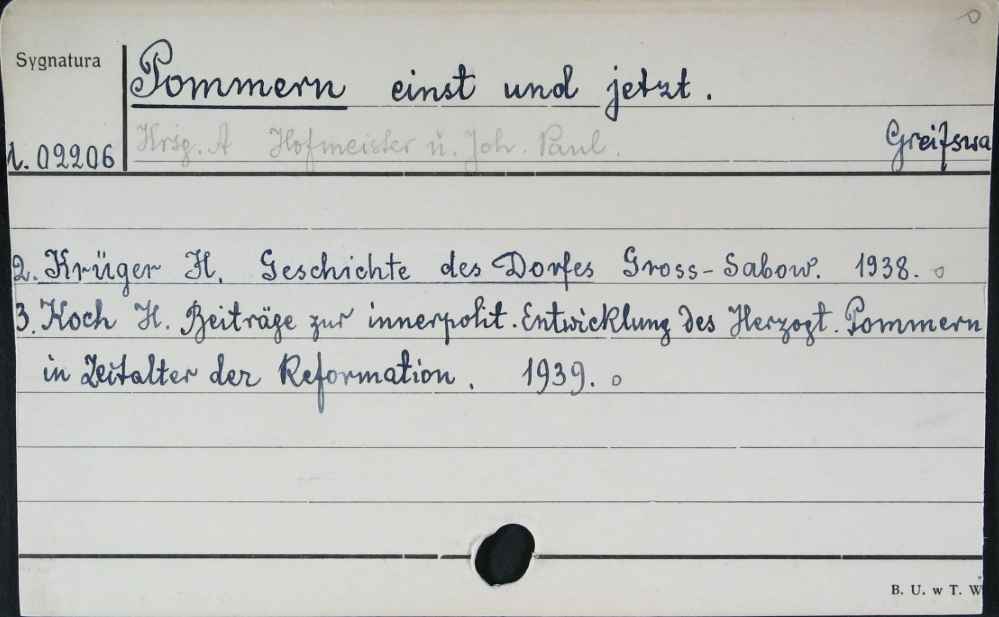 Sygnatura
Pommern einst und jetzt.
1. 02206
Hrsg. A Hofmeister u. Joh. Paul.
Greifswa
2. Krüger H. Geschichte des Dorfes Gross-Sabow. 1938.
3. Koch H. Beiträge zur innerpolit. Entwicklung des Herzogt. Pommern
in Zeitalter der Reformation. 1939.
B. U. w T. W